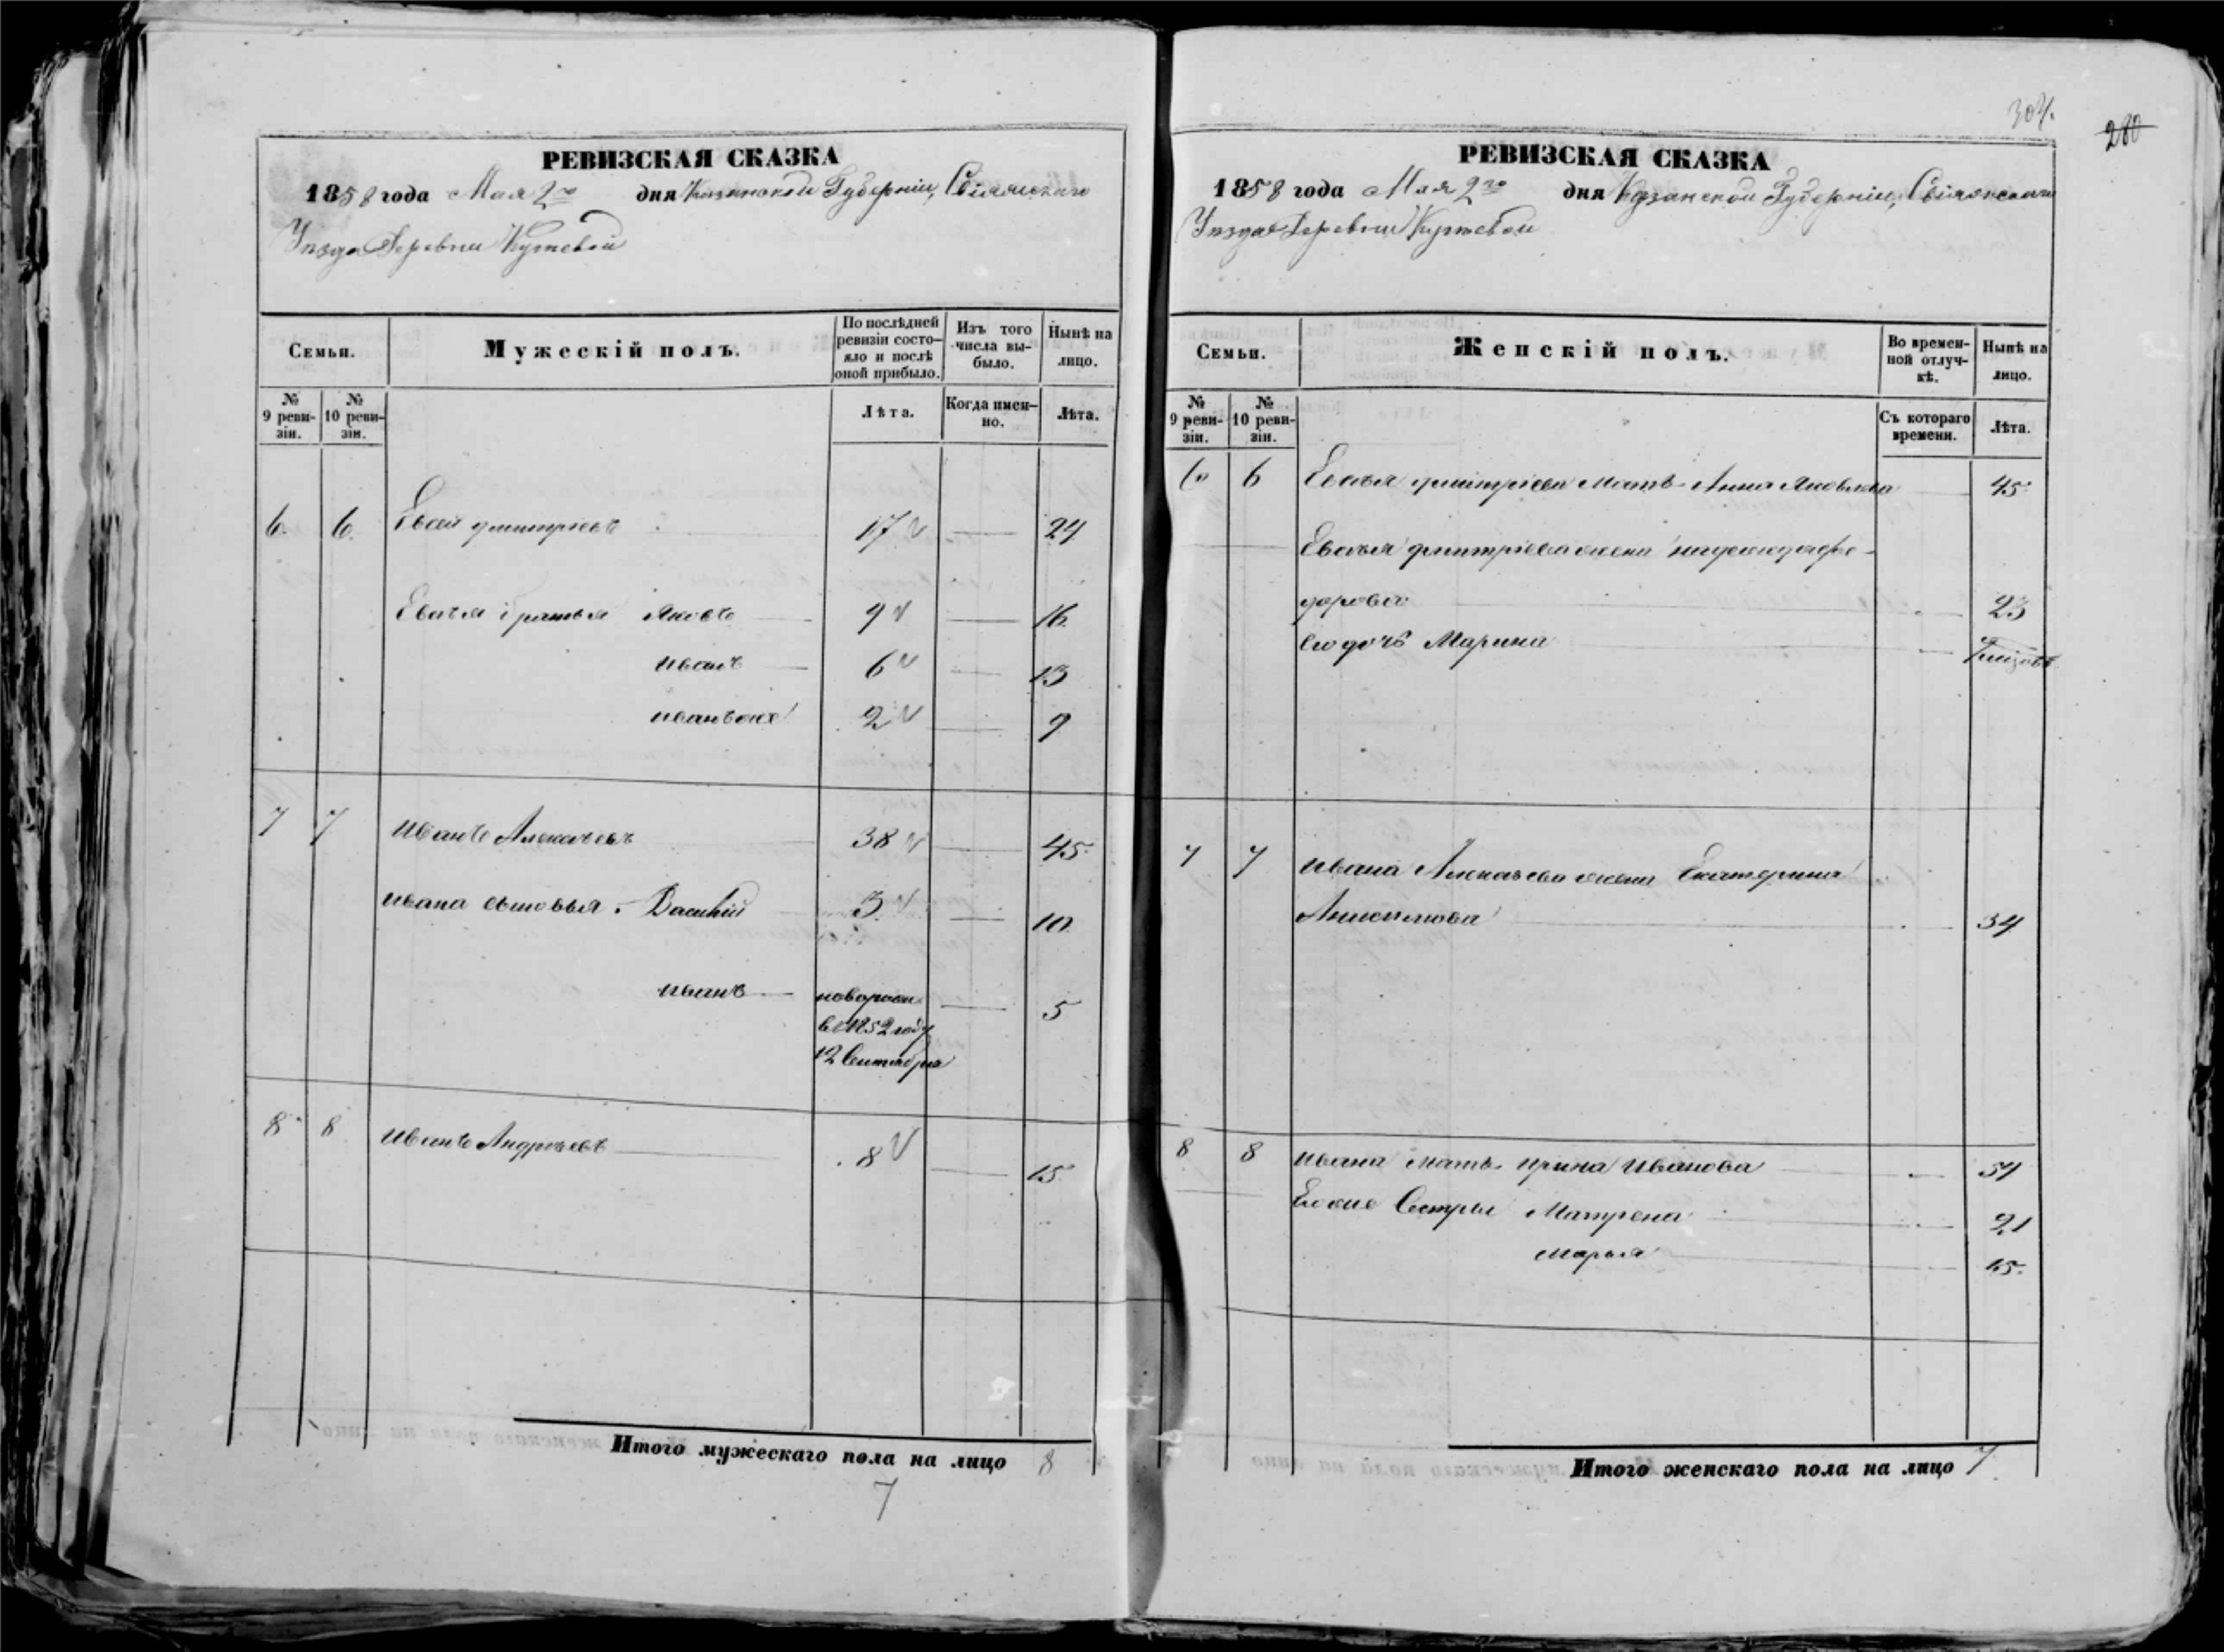 304.
280
РЕВИЗСКАЯ СКАЗКА
1858 года Мая 2го дня Казанской Губерніи, Свіяжскаго
Уѣзда Деревни
Семьи.
Мужескій полъ.
По послѣдней ревизіи состояло и послѣ оной прибыло.
Изъ того числа выбыло.
Нынѣ на лицо.
№ 9 ревизіи.
№ 10 ревизіи.
Лѣта.
Когда именно.
Лѣта.
6. 6. Дмитріевъ 17 24
братья Яковъ 9 16
Иванъ 6 13
Иванъ же 2 9
7 7 Иванъ Алексѣевъ 38 45
Ивана сыновья. 3 10
Иванъ новорожд. 5
въ 1852 году
12 Сентября
8 8 Иванъ Андреевъ 8 15
Итого мужескаго пола на лицо 8
7
РЕВИЗСКАЯ СКАЗКА
1858 года Мая 2го дня Казанской Губерніи, Свіяжскаго
Уѣзда Деревни
Семьи.
Женскій полъ.
Во временной отлучкѣ.
Нынѣ на лицо.
№ 9 ревизіи.
№ 10 ревизіи.
Съ котораго времени.
Лѣта.
6 6 Дмитріева Мать Анна Яковлева 45
Дмитріева жена Фе-
дорова 23
Его дочь Марина
7 7 Ивана Алексѣева жена Екатерина
34
8 8 Ивана мать Ирина Иванова 54
Его же Сестры Матрена 21
Марья 15
Итого женскаго пола на лицо 7